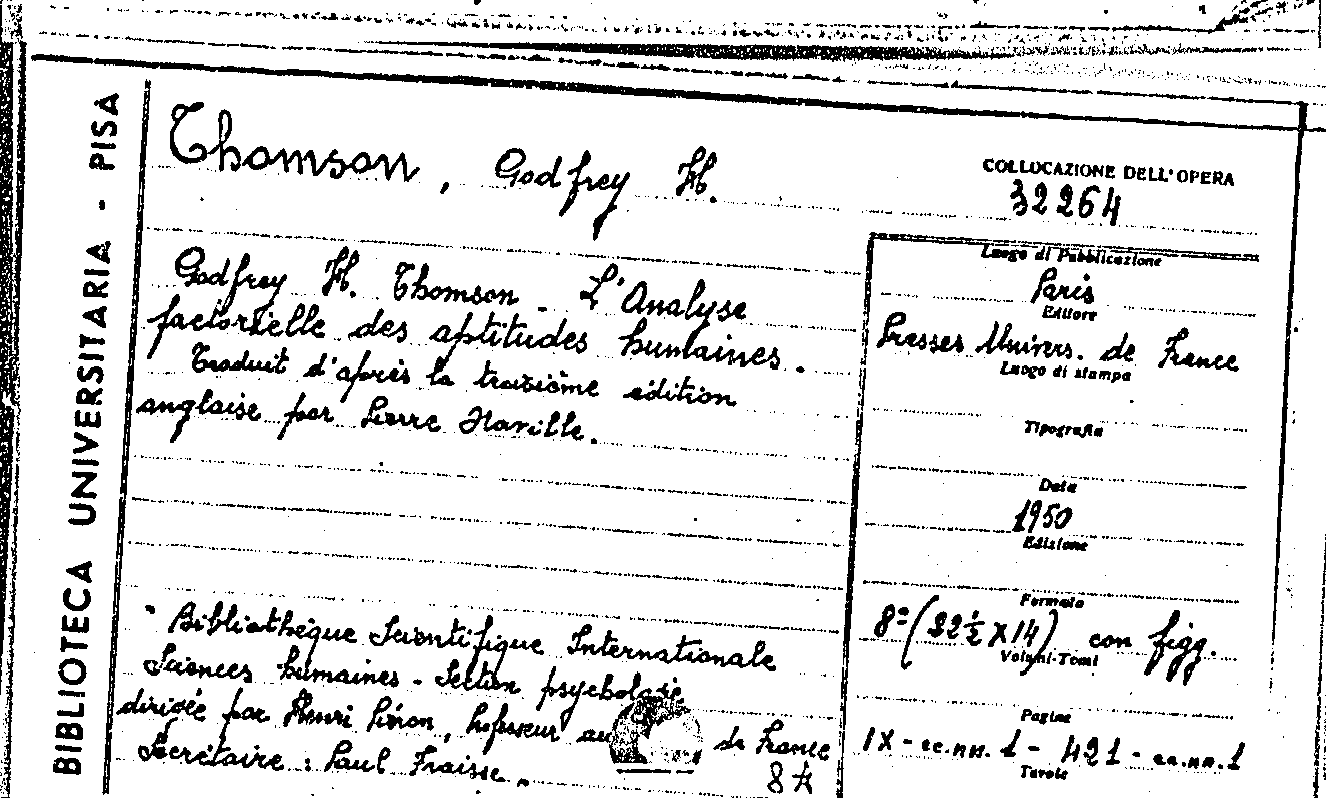 BIBLIOTECA UNIVERSITARIA - PISA
Thomson, Godfrey H.
COLLOCAZIONE DELL'OPERA
32264
Godfrey H. Thomson - L'Analyse
factorielle des aptitudes humaines.
Traduit d'après la troisième édition
anglaise par Pierre Naville.
Bibliothèque Scientifique Internationale
Sciences humaines - Section psychologie
dirigée par Henri Piéron, Professeur au de France
Secrétaire : Paul Fraisse.
8 A
Luogo di Pubblicazione
Paris
Editore
Presses Univers. de France
Luogo di stampa
Tipografia
Data
1950
Edizione
Formato
8º (22½ x 14) con figg.
Volumi-Tomi
Pagine
IX - cc.nn. 1 - 421 - cc.nn. 1
Tavole